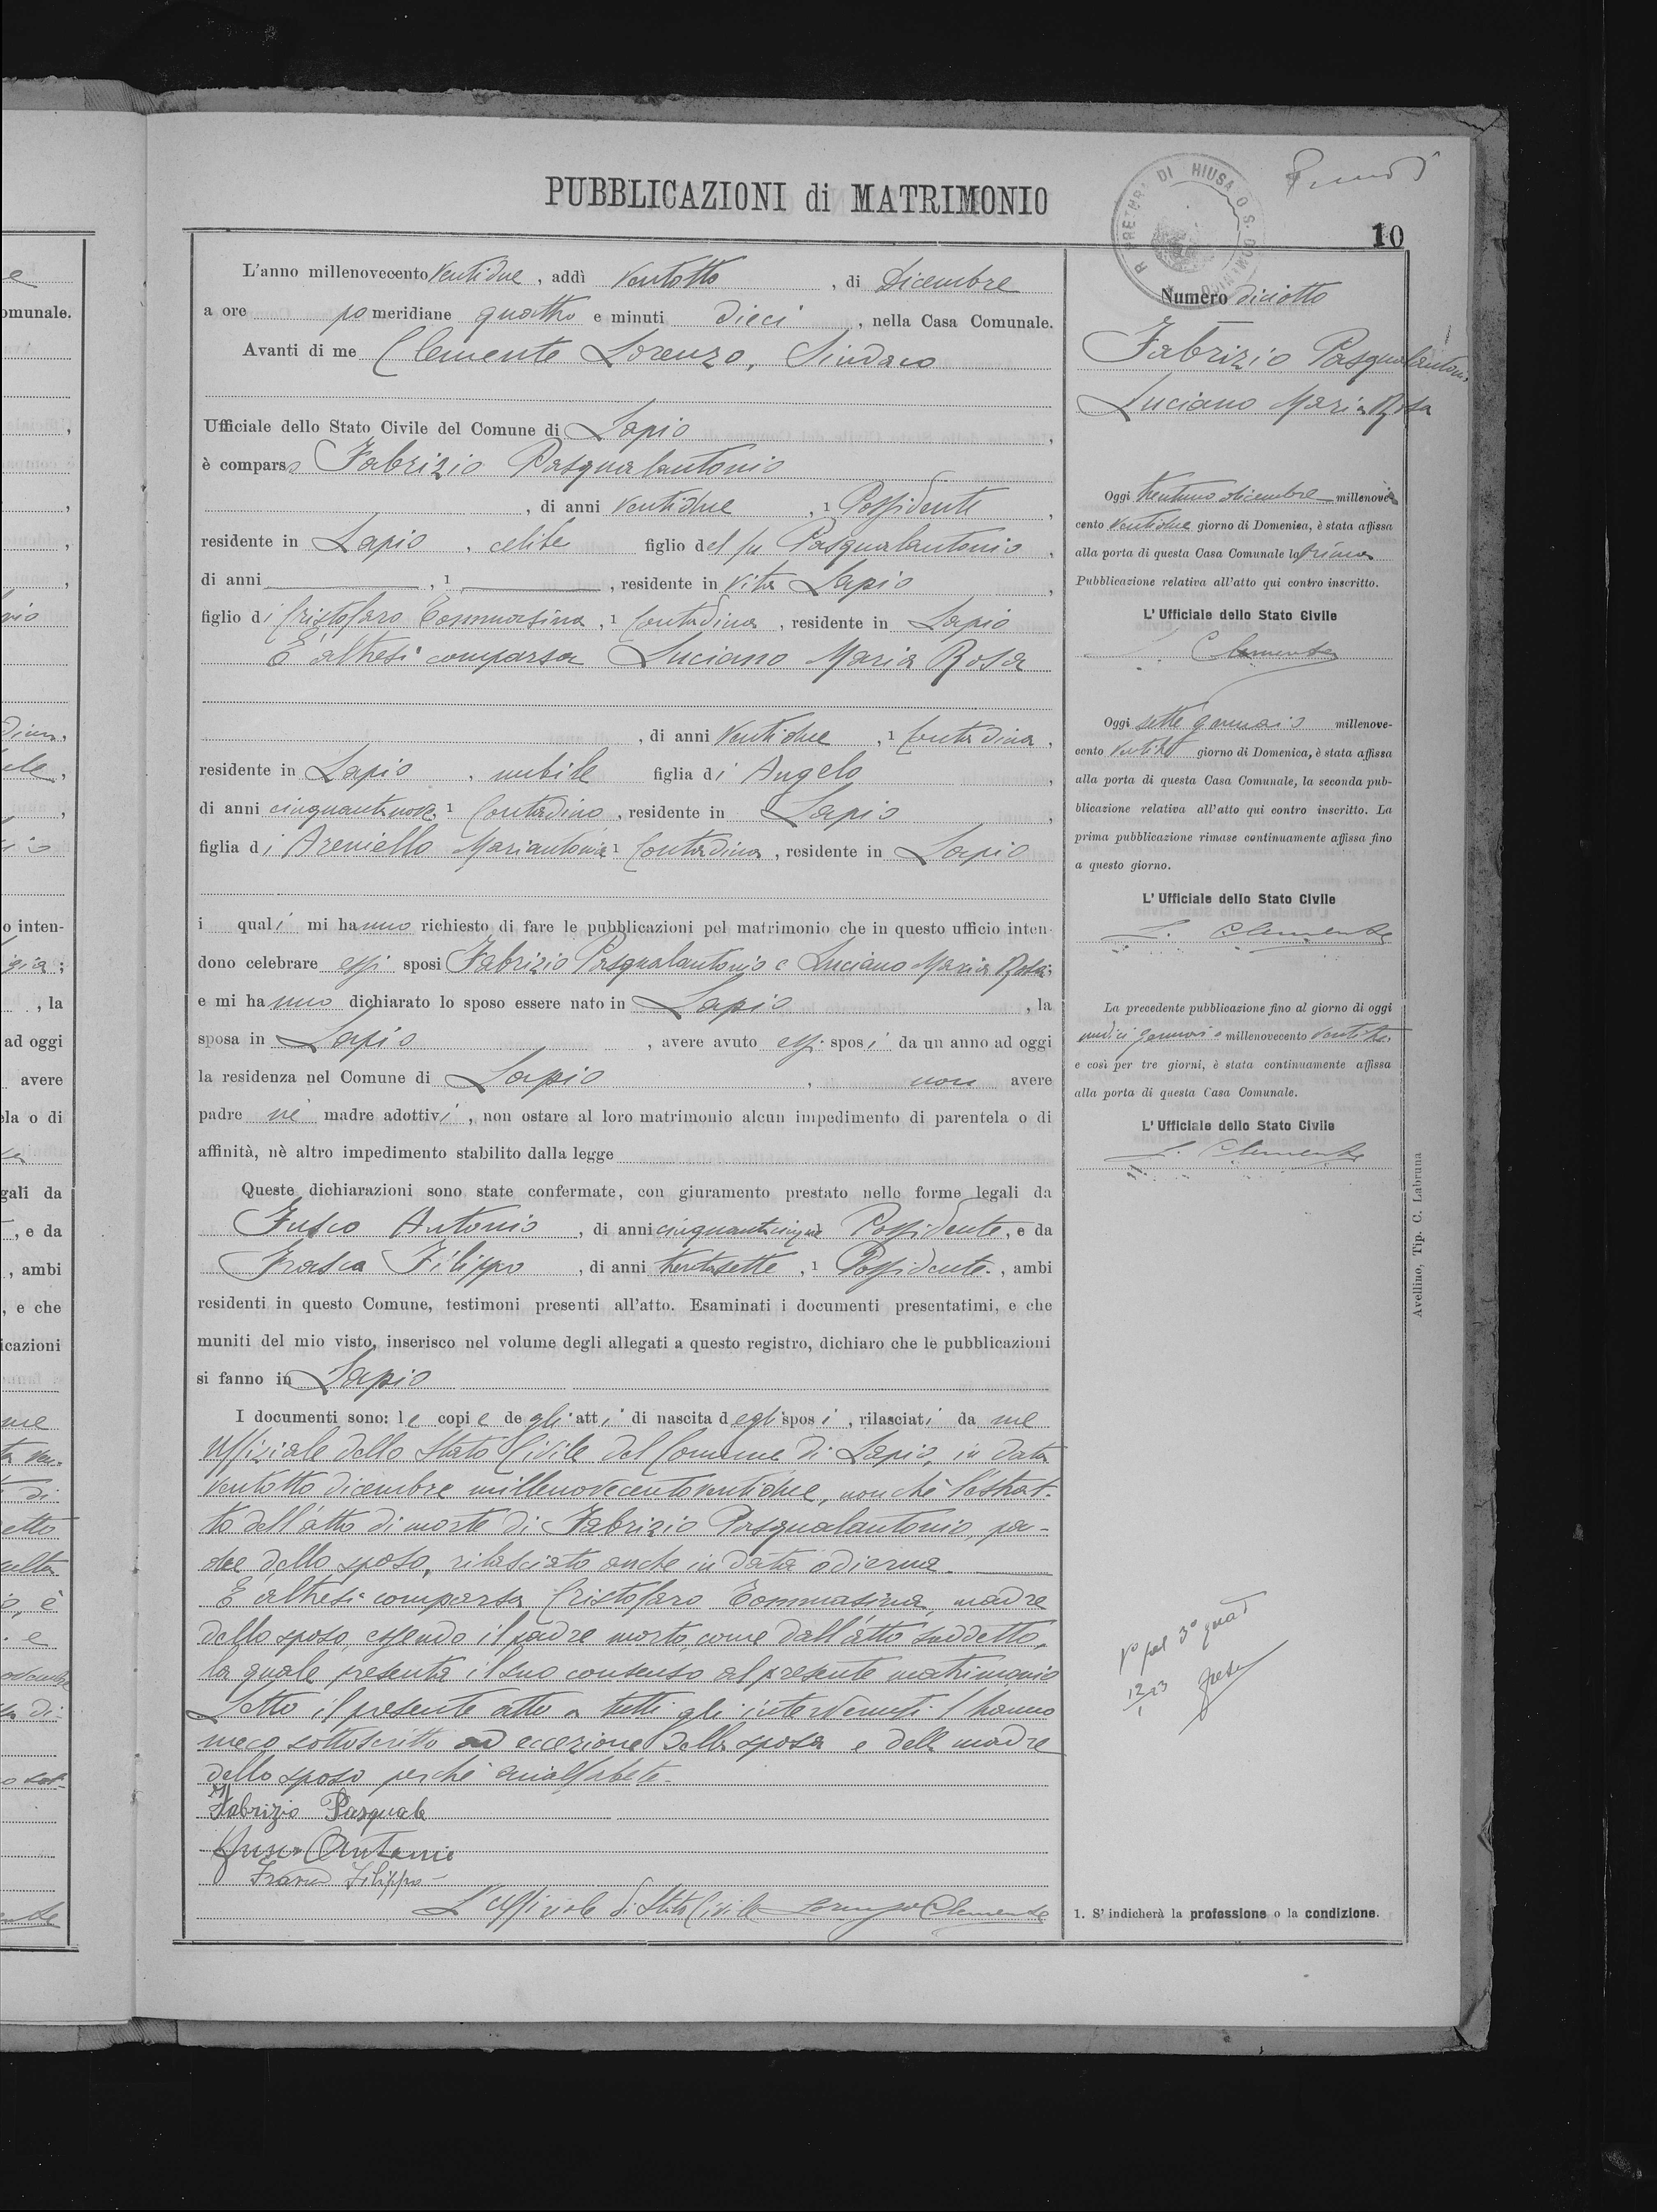 PUBBLICAZIONI di MATRIMONIO
10
L'anno millenovecento ventidue, addì ventotto, di Dicembre
a ore pomeridiane quattro e minuti dieci, nella Casa Comunale.
Avanti di me Clemente Lorenzo, Sindaco
Ufficiale dello Stato Civile del Comune di Lapio,
è comparso Fabrizio Pasqualantonio
, di anni ventidue, 1 Possidente,
residente in Lapio, celibe figlio del fu Pasqualantonio,
di anni , 1 , residente in vita Lapio,
figlio di Cristofaro Tommasina, 1 Contadina, residente in Lapio
È altresì comparsa Luciano Maria Rosa
, di anni ventidue, 1 Contadina,
residente in Lapio, nubile figlia di Angelo,
di anni cinquantanove, 1 Contadino, residente in Lapio,
figlia di Areniello Mariantonia 1 Contadina, residente in Lapio
i quali mi hanno richiesto di fare le pubblicazioni pel matrimonio che in questo ufficio inten-
dono celebrare essi sposi Fabrizio Pasqualantonio e Luciano Maria Rosa;
e mi hanno dichiarato lo sposo essere nato in Lapio, la
sposa in Lapio, avere avuto essi sposi da un anno ad oggi
la residenza nel Comune di Lapio, non avere
padre nè madre adottivi, non ostare al loro matrimonio alcun impedimento di parentela o di
affinità, nè altro impedimento stabilito dalla legge
Queste dichiarazioni sono state confermate, con giuramento prestato nelle forme legali da
Fusco Antonio, di anni cinquantacinque 1 Possidente, e da
Frasca Filippo, di anni trentasette, 1 Possidente, ambi
residenti in questo Comune, testimoni presenti all'atto. Esaminati i documenti presentatimi, e che
muniti del mio visto, inserisco nel volume degli allegati a questo registro, dichiaro che le pubblicazioni
si fanno in Lapio
I documenti sono: le copie degli atti di nascita degli sposi, rilasciati da me
Uffiziale dello Stato Civile del Comune di Lapio, in data
ventotto dicembre millenovecentoventidue, nonchè l'estrat-
to dell'atto di morte di Fabrizio Pasqualantonio, pa-
dre dello sposo, rilasciato anche in data odierna.
È altresì comparsa Cristofaro Tommasina, madre
dello sposo, essendo il padre morto, come dall'atto suddetto,
la quale presenta il suo consenso al presente matrimonio
Letto il presente atto a tutti gli intervenuti l'hanno
meco sottoscritto ad eccezione della sposa e della madre
dello sposo perchè analfabete.
Fabrizio Pasquale
Fusco Antonio
Frasca Filippo
L'Uffiziale di Stato Civile Lorenzo Clemente
Numero diciotto
Fabrizio Pasqualantonio
Luciano Maria Rosa
Oggi trentuno dicembre millenove-
cento ventidue giorno di Domenica, è stata affissa
alla porta di questa Casa Comunale la prima
Pubblicazione relativa all'atto qui contro inscritto.
L'Ufficiale dello Stato Civile
L. Clemente
Oggi sette gennaio millenove-
cento ventitre giorno di Domenica, è stata affissa
alla porta di questa Casa Comunale, la seconda pub-
blicazione relativa all'atto qui contro inscritto. La
prima pubblicazione rimase continuamente affissa fino
a questo giorno.
L'Ufficiale dello Stato Civile
L. Clemente
La precedente pubblicazione fino al giorno di oggi
undici gennaio millenovecento ventitre
e così per tre giorni, è stata continuamente affissa
alla porta di questa Casa Comunale.
L'Ufficiale dello Stato Civile
L. Clemente
1. S'indicherà la professione o la condizione.
Avellino, Tip. C. Labruna